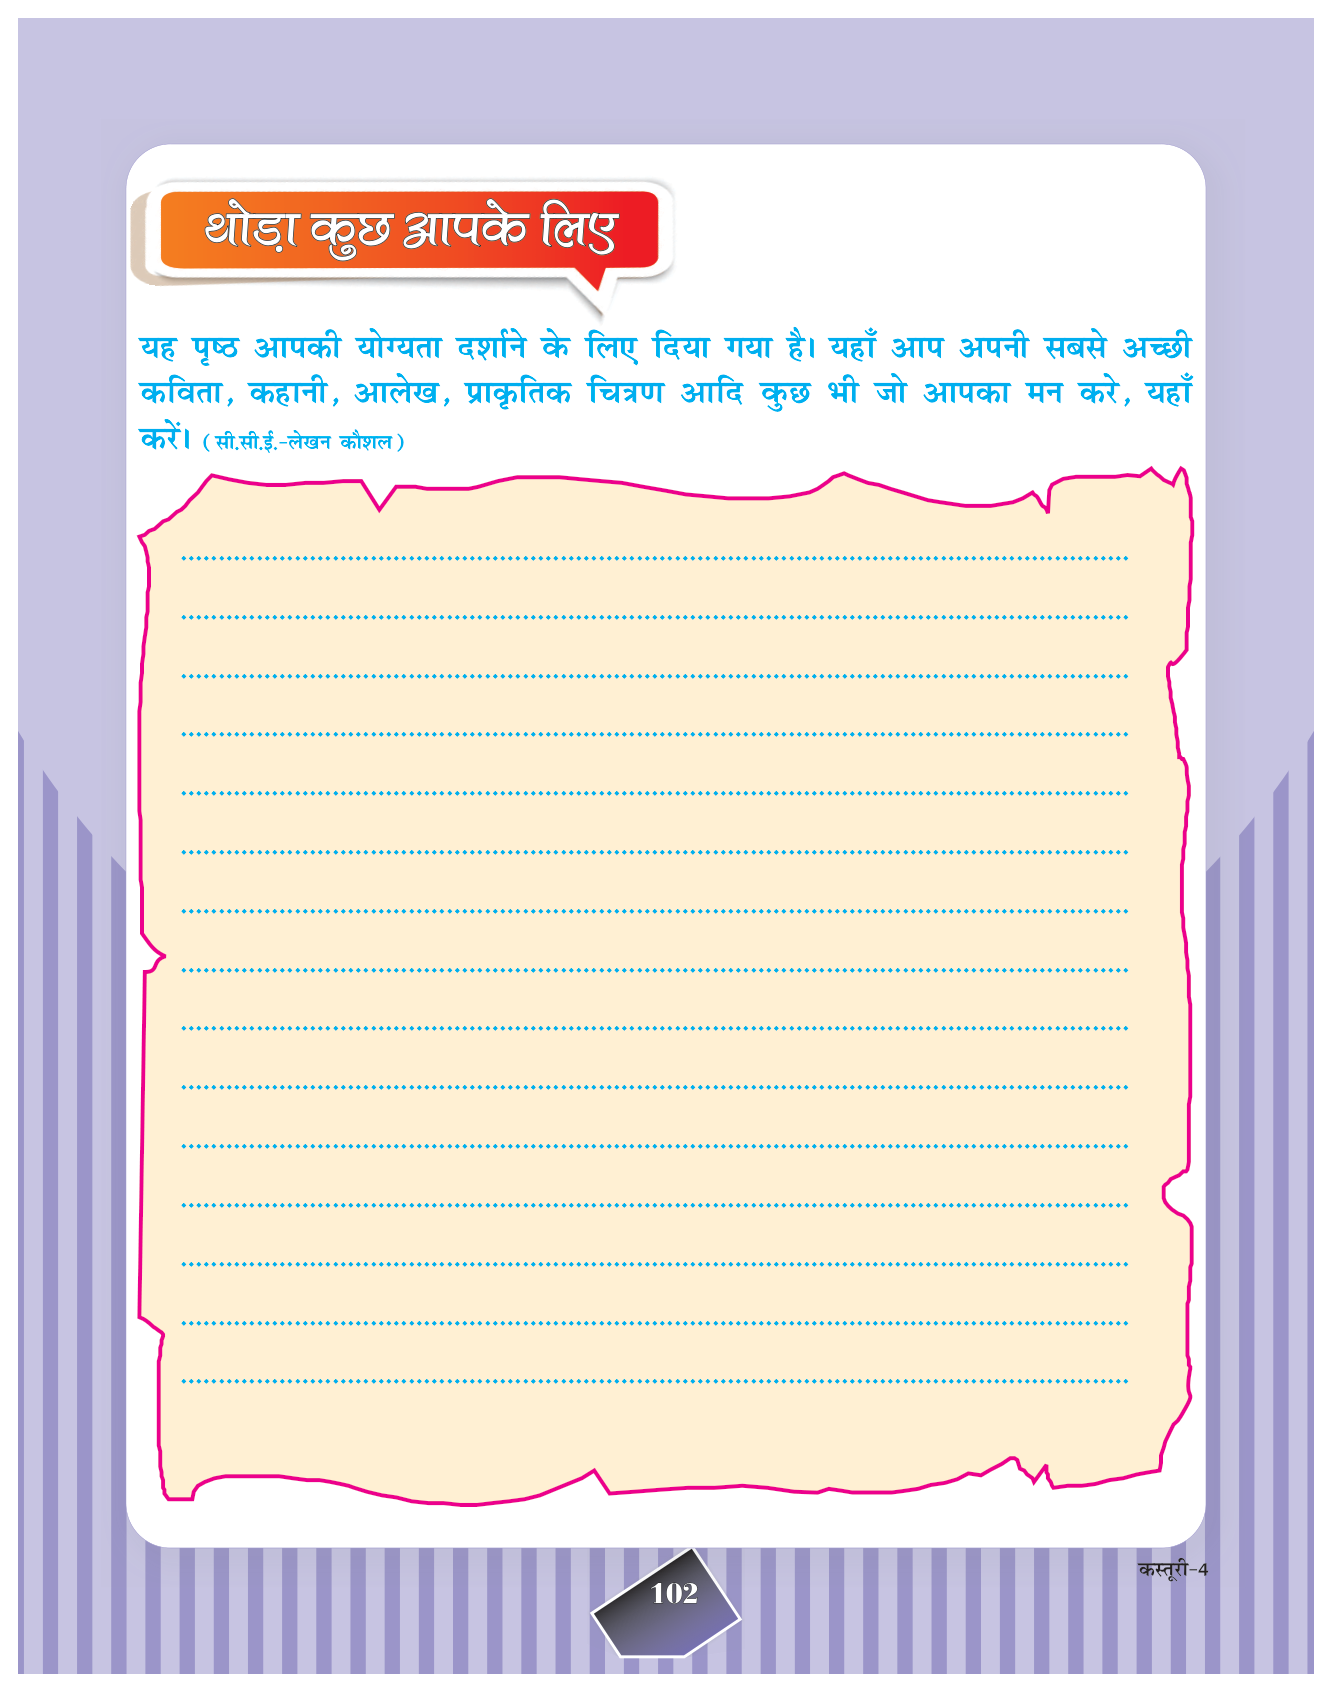 थोड़ा कुछ आपके लिए
यह पृष्ठ आपकी योग्यता दर्शाने के लिए दिया गया है। यहाँ आप अपनी सबसे अच्छी
कविता, कहानी, आलेख, प्राकृतिक चित्रण आदि कुछ भी जो आपका मन करे, यहाँ
करें। (सी.सी.ई.-लेखन कौशल)
102
कस्तूरी-4